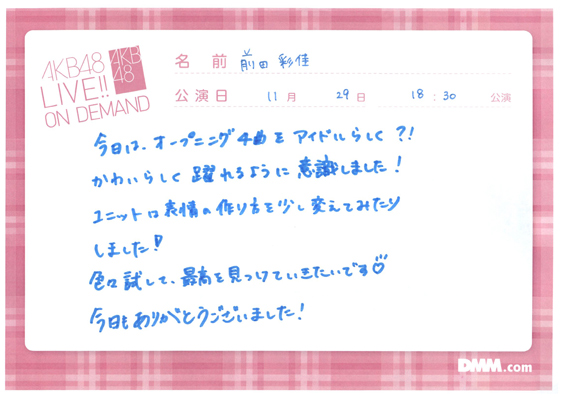 AKB48
LIVE!!
ON DEMAND
AKB
48
名前 前田 彩佳
公演日 11月 29日 18:30 公演
今日は、オープニング4曲をアイドルらしく?!
かわいらしく躍れるように意識しました!
ユニットは表情の作り方を少し変えてみたり
しました!
色々試して、最高を見つけていきたいです♡
今日もありがとうございました!
DMM.com